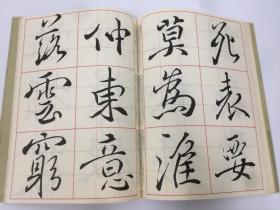 死表要
莫為淮
仲東意
落雲窮